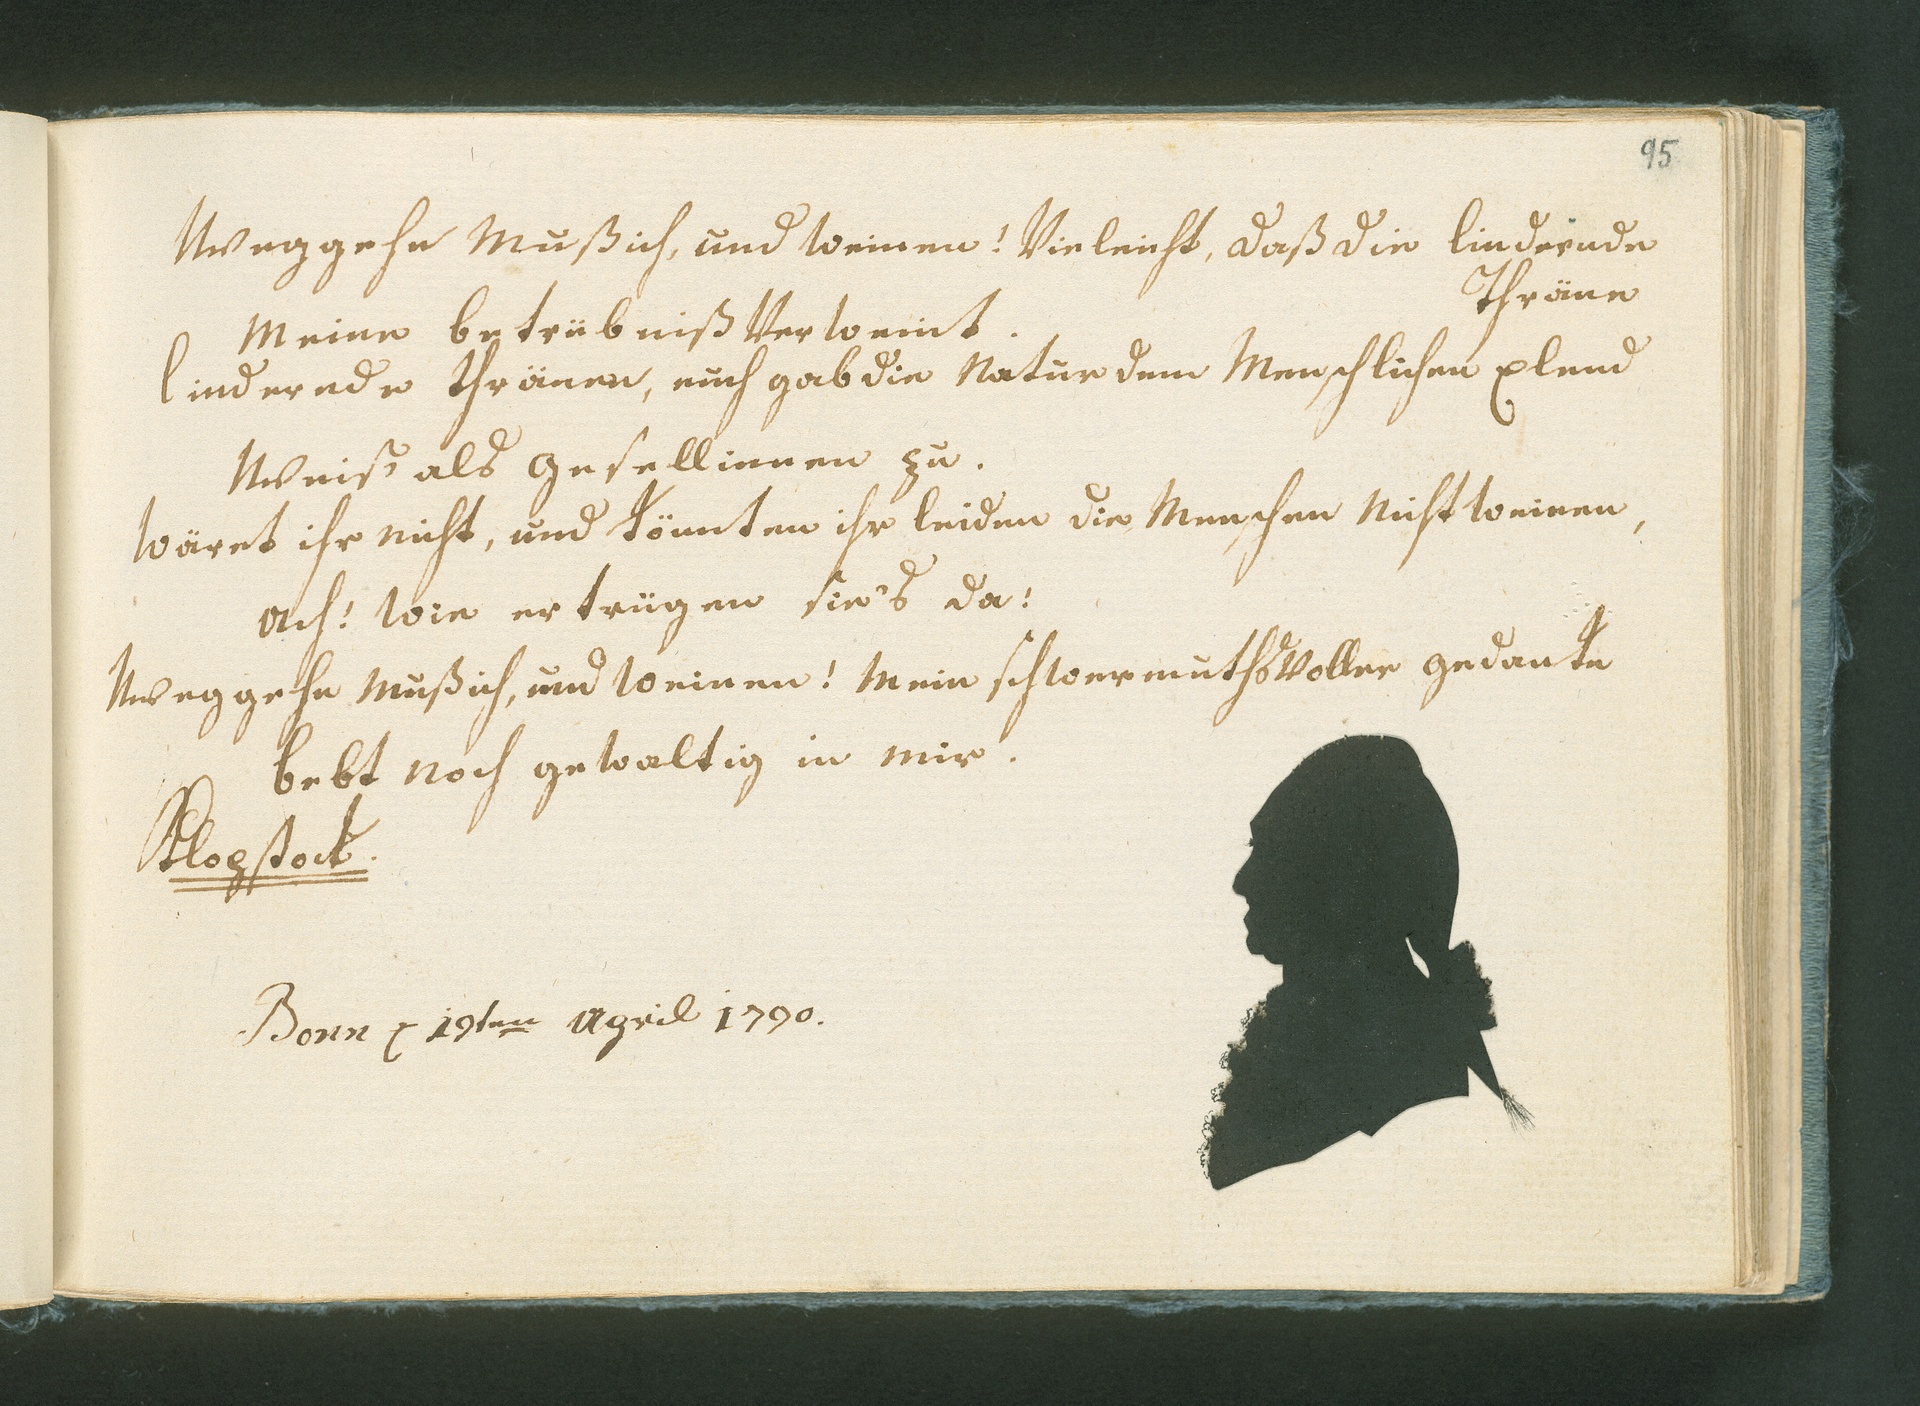 95
Weggehe Muß ich, und weinen! Vieleicht, daß die lindernde
Thräne
Meine betrübniß Verweint.
lindernde thränen, euch gab die Natur dem Menschlichen Elend
Weiß als Gesellinnen zu.
wäret ihr nicht, und könnten ihr leiden die Menschen Nicht weinen,
Ach! wie ertrügen sie's da!
Weggehe Muß ich, und weinen! Mein schwermuthsVoller gedanke
bebt noch gewaltig in mir.
Klopstock.
Bonn 19ten April 1790.